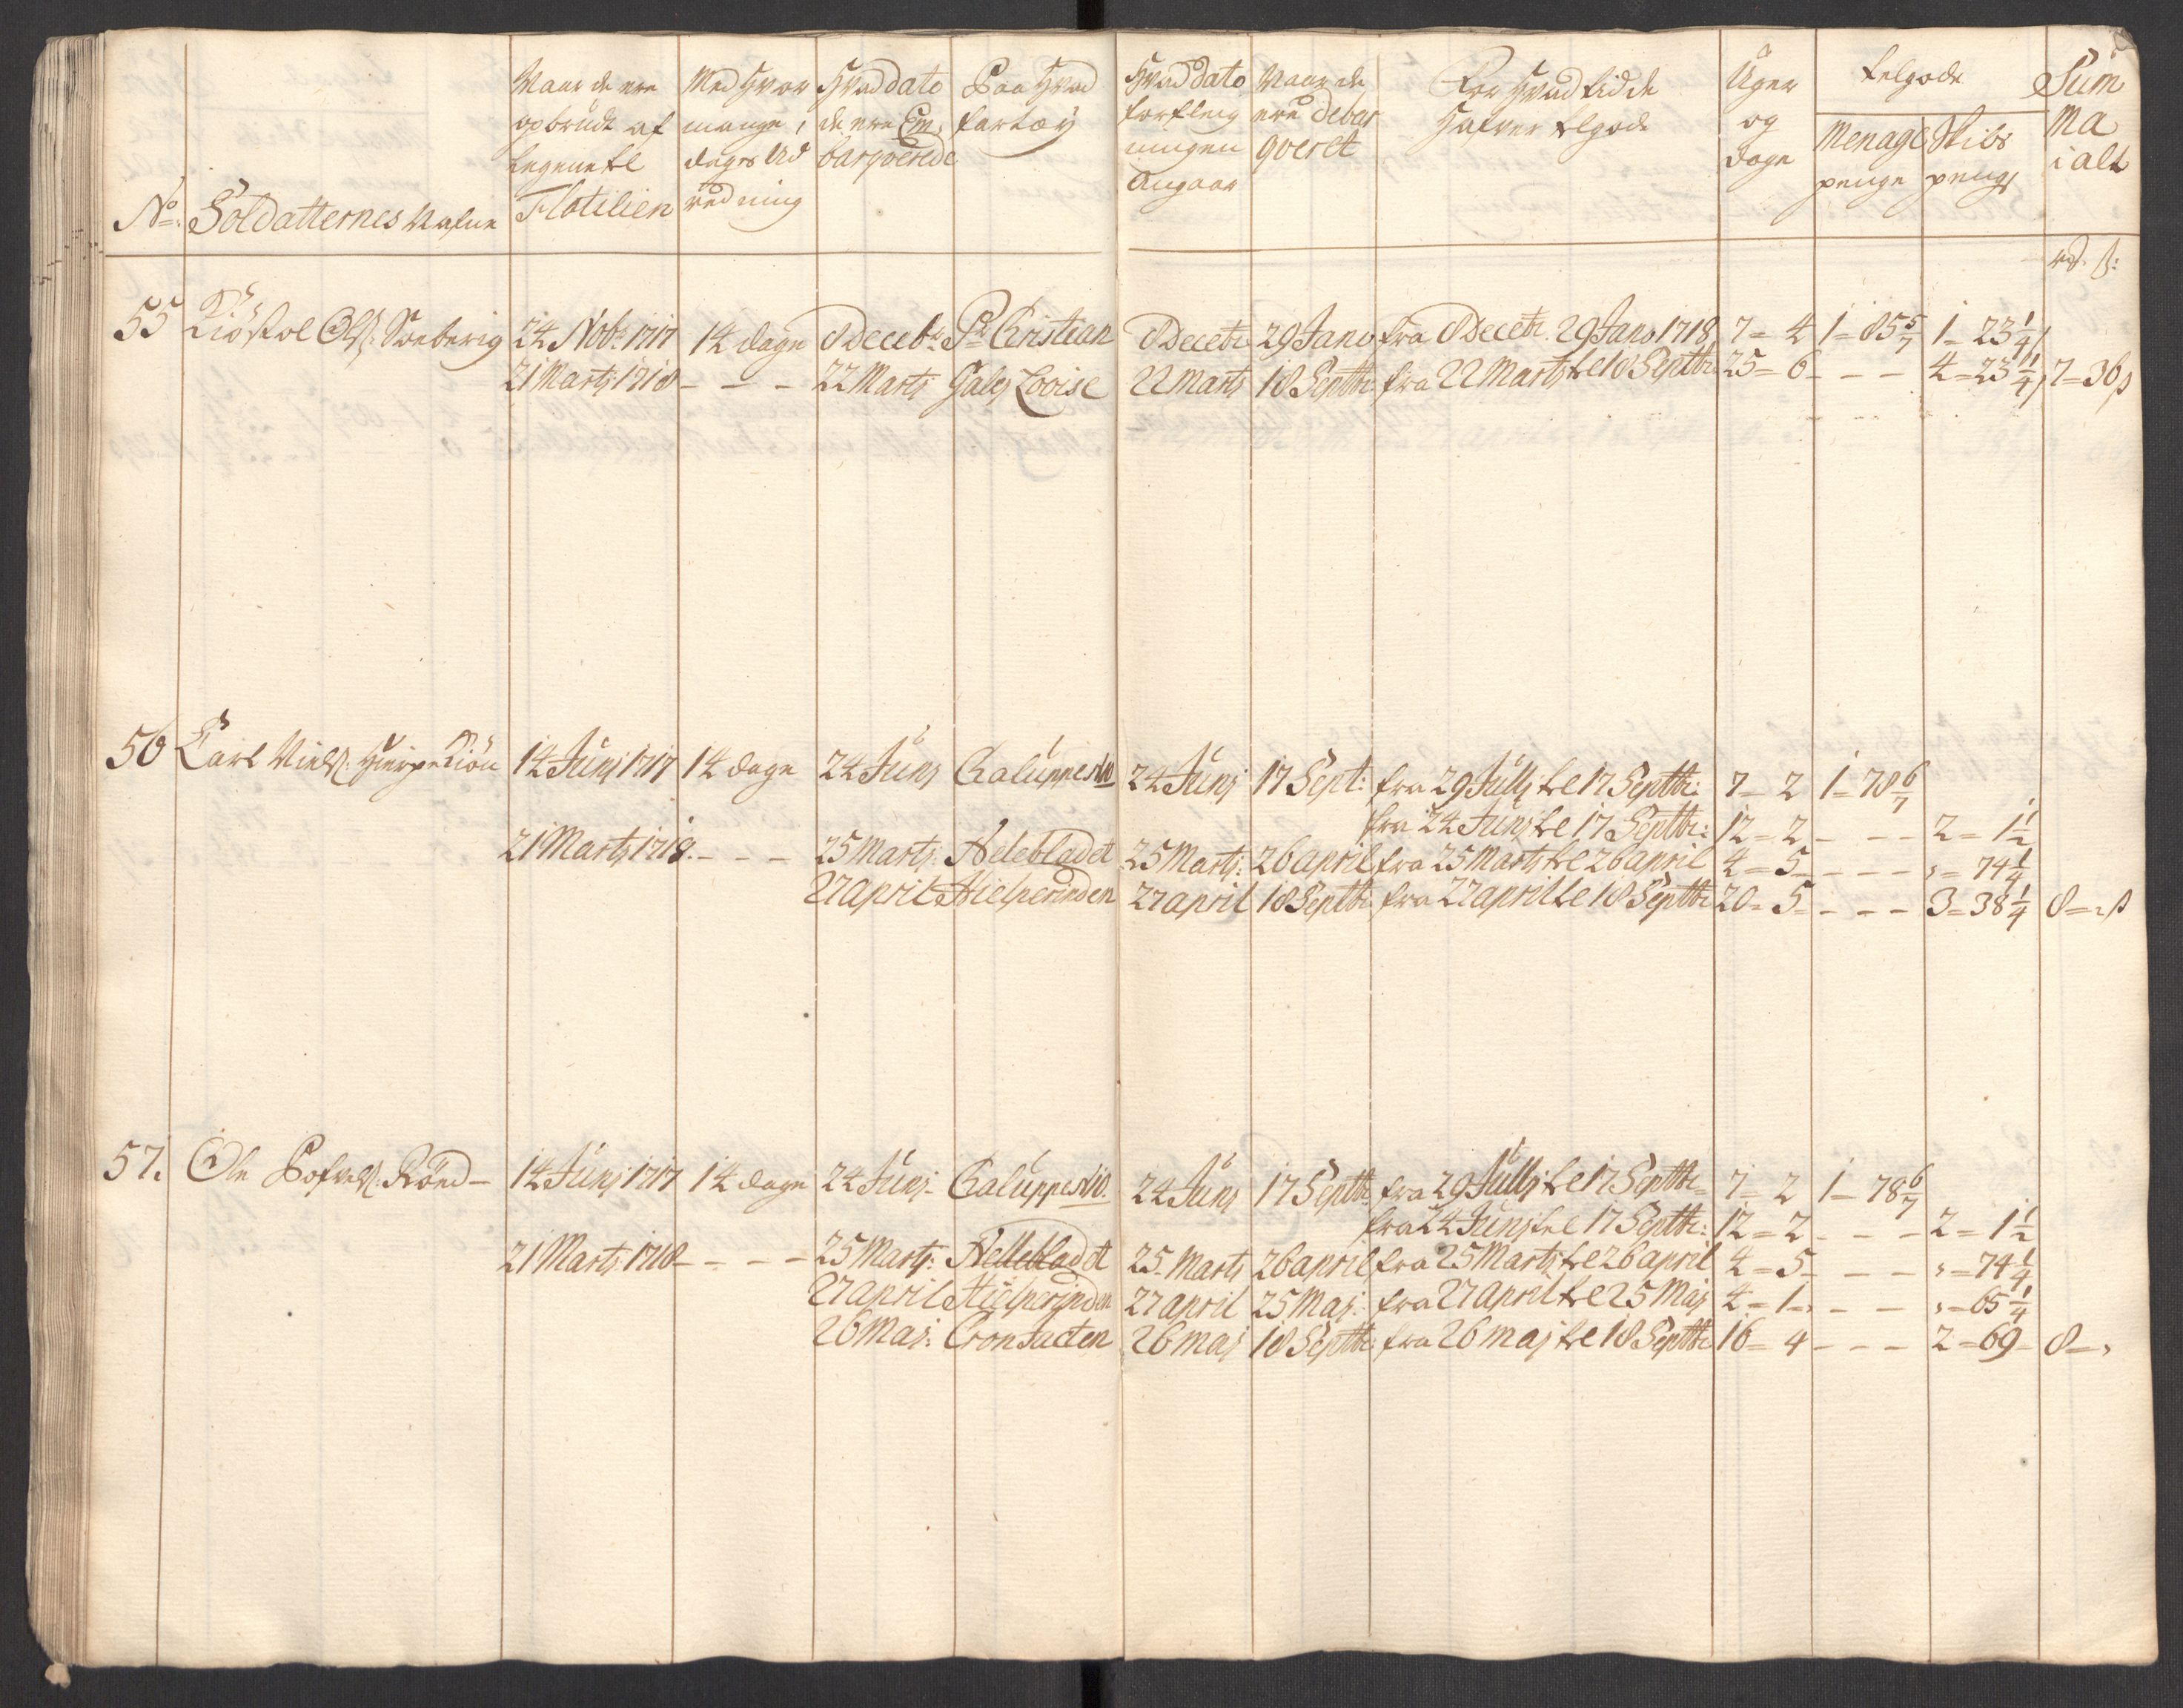 No: Soldatternes Nafne
Naar de ere opbrudt af legenete Flotilien
Med hvor mange dages Ud redning
Hvad dato de ere Embarqverede
Paa hvad fartøy
Hvad dato forfleigningen Angaar
Naar de ere debarqveret
For hvad tid de hafver tilgode
Uger og dage
tilgode
Menage penge
Skibs penge
Summa i alt
rd. ß:
55 Kiøstol Olß: 24 Nobr: 1717 14 dage 8 Decebr: Pr Christian 8 Decebr 29 Jano fra 8 Decebr. 29 Jano 1718 7=4 1=85 5/7 1=23 1/4
21 Marts 1718 - - - 22 Marts Galej Lovise 22 Marts 18 Septbr fra 22 Marts til 18 Septbr 25=6 - - - 4=23 1/4 7=36ß
56 Carl Nielß: 14 Junj 1717 14 dage 24 Junj Galuppe No 24 Junj 17 Sept: fra 29 Julij til 17 Septbr: 7=2 1=78 6/7
fra 24 Junj til 17 Septbr: 12=2 - - - 2=1 1/2
21 Marts 1718. - - - 25 Marts: Nelebladet 25 Marts: 26 april fra 25 Marts til 26 april 4=5 - - - "=74 1/4
27 april Hielperinden 27 april 18 Septbr: fra 27 april til 18 Septbr 20=5 - - - 3=38 1/4 8=2ß
57. Ole 14 Junj 1717 14 dage 24 Junj Galuppe No. 24 Junj 17 Septbr fra 29 Julij til 17 Septbr 7=2 1=78 6/7
fra 24 Junj til 17 Septbr: 12=2 - - - 2=1 1/2
21 Marts 1718 - - - 25 Marts: Nellebladet 25 Marts 26 april fra 25 Marts til 26 april 4=5 - - - "=74 1/4
27 april Hielperinden 27 april 25 Maj: fra 27 april til 25 Maj 4=1 - - - "=65 1/4
26 Maj: 26 maj 18 Septbr: fra 26 maj til 18 Septbr 16=4 - - - 2=69 8=,